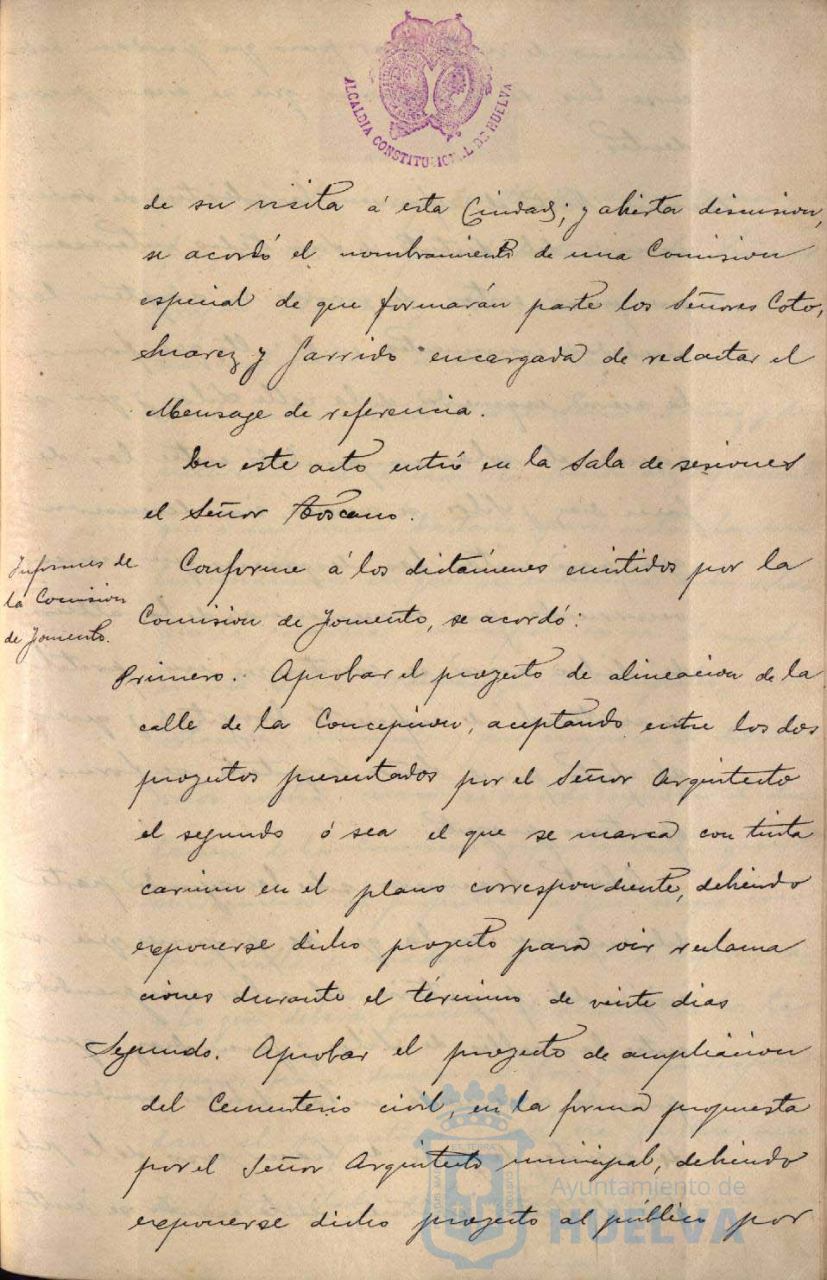 ALCALDIA CONSTITUCIONAL DE HUELVA
de su visita á esta Ciudad; y abierta discusion,
se acordó el nombramiento de una Comision
especial de que formarán parte los Señores Coto,
Suarez y Garrido encargada de redactar el
Mensage de referencia.
En este acto entró en la Sala de sesiones
el Señor Toscano.
Informes de
la Comision
de Fomento.
Conforme á los dictámenes emitidos por la
Comision de Fomento, se acordó:
Primero. Aprobar el proyecto de alineacion de la
calle de la Concepcion, aceptando entre los dos
proyectos presentados por el Señor Arquitecto
el segundo ó sea el que se marca con tinta
carmin en el plano correspondiente, debiendo
exponerse dicho proyecto para oir reclama
ciones durante el término de veinte dias
Segundo. Aprobar el proyecto de ampliacion
del Cementerio civil, en la forma propuesta
por el Señor Arquitecto municipal, debiendo
exponerse dicho proyecto al publico por
Ayuntamiento de
HUELVA